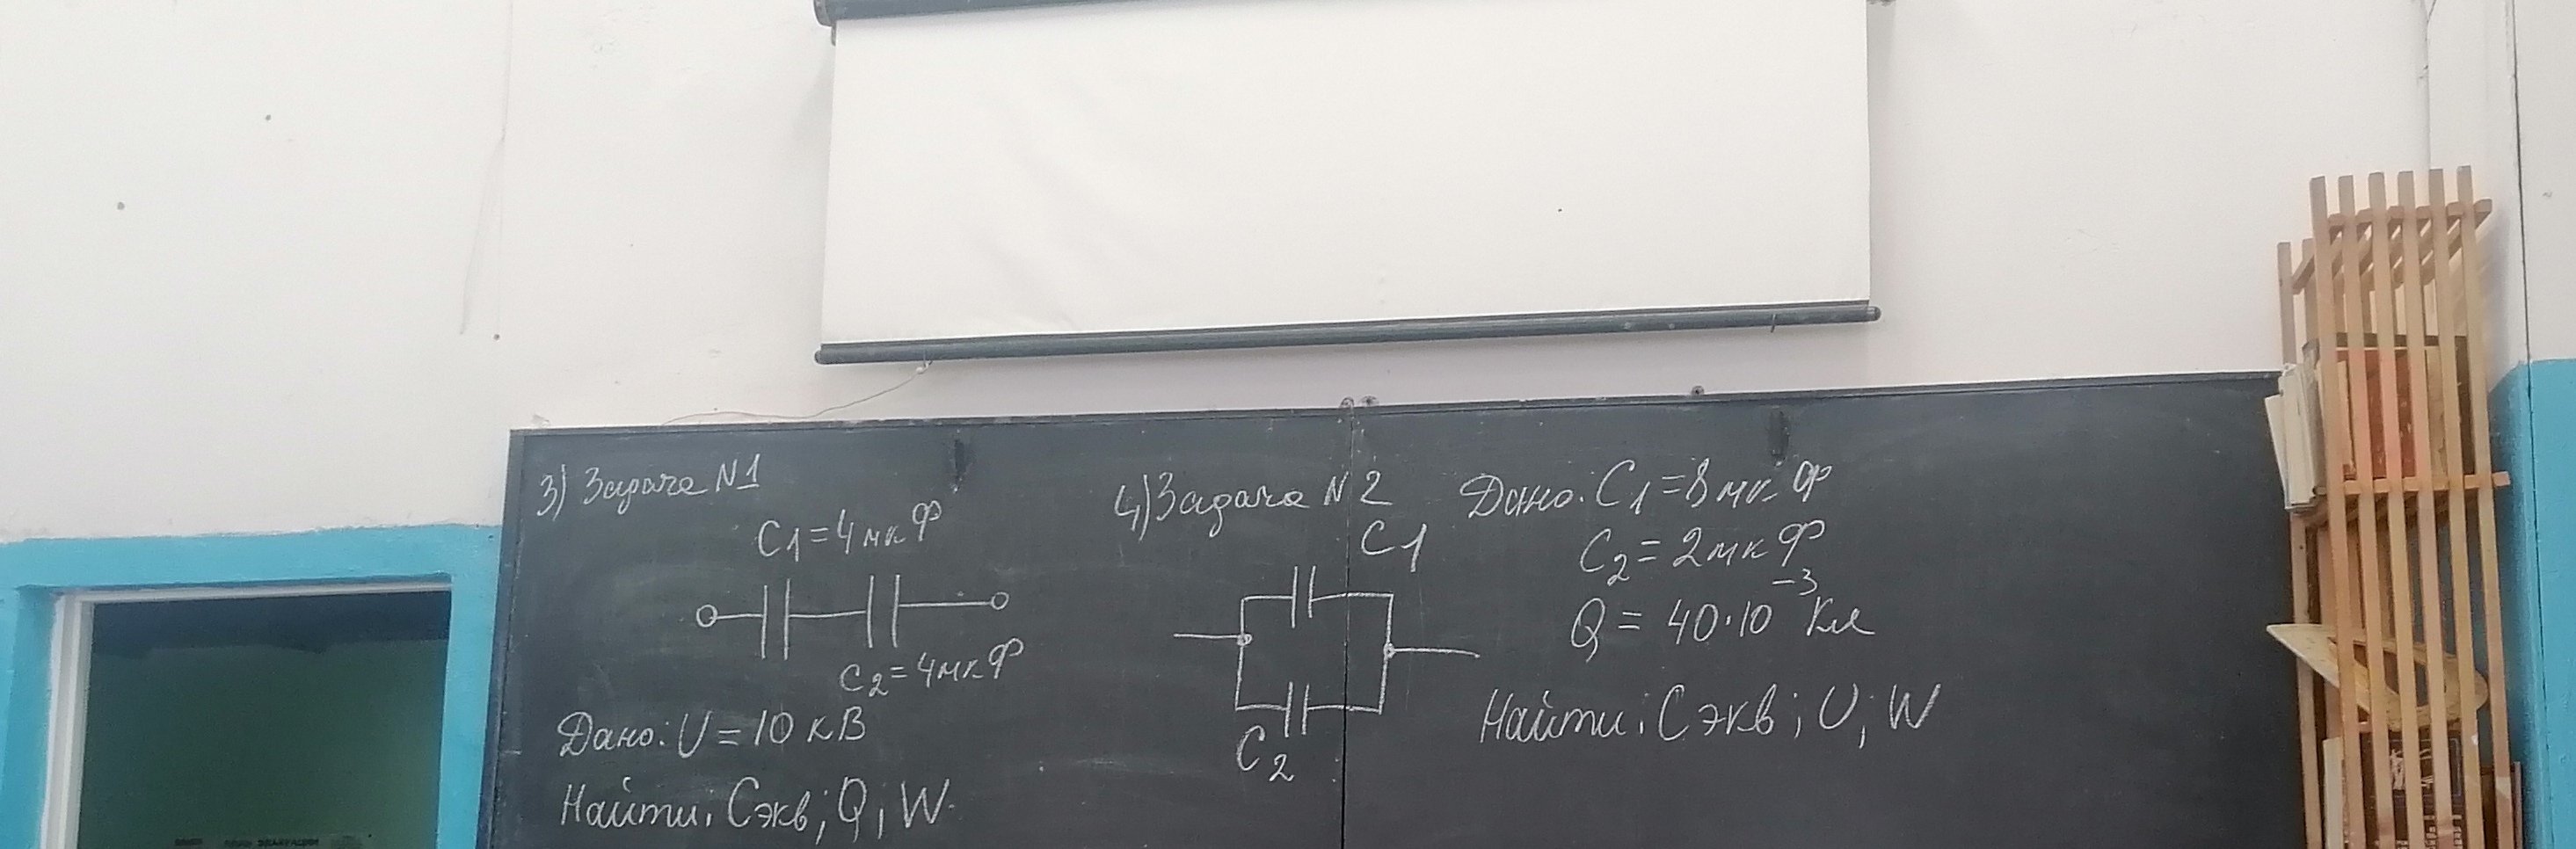 3) Задача №1
C1=4мкФ
C2=4мкФ
Дано: U=10 кВ
Найти: Cэкв; Q; W.
4) Задача №2
C1
C2
Дано: C1=8мкФ
C2=2мкФ
Q = 40·10⁻³ Кл
Найти: Cэкв; U; W